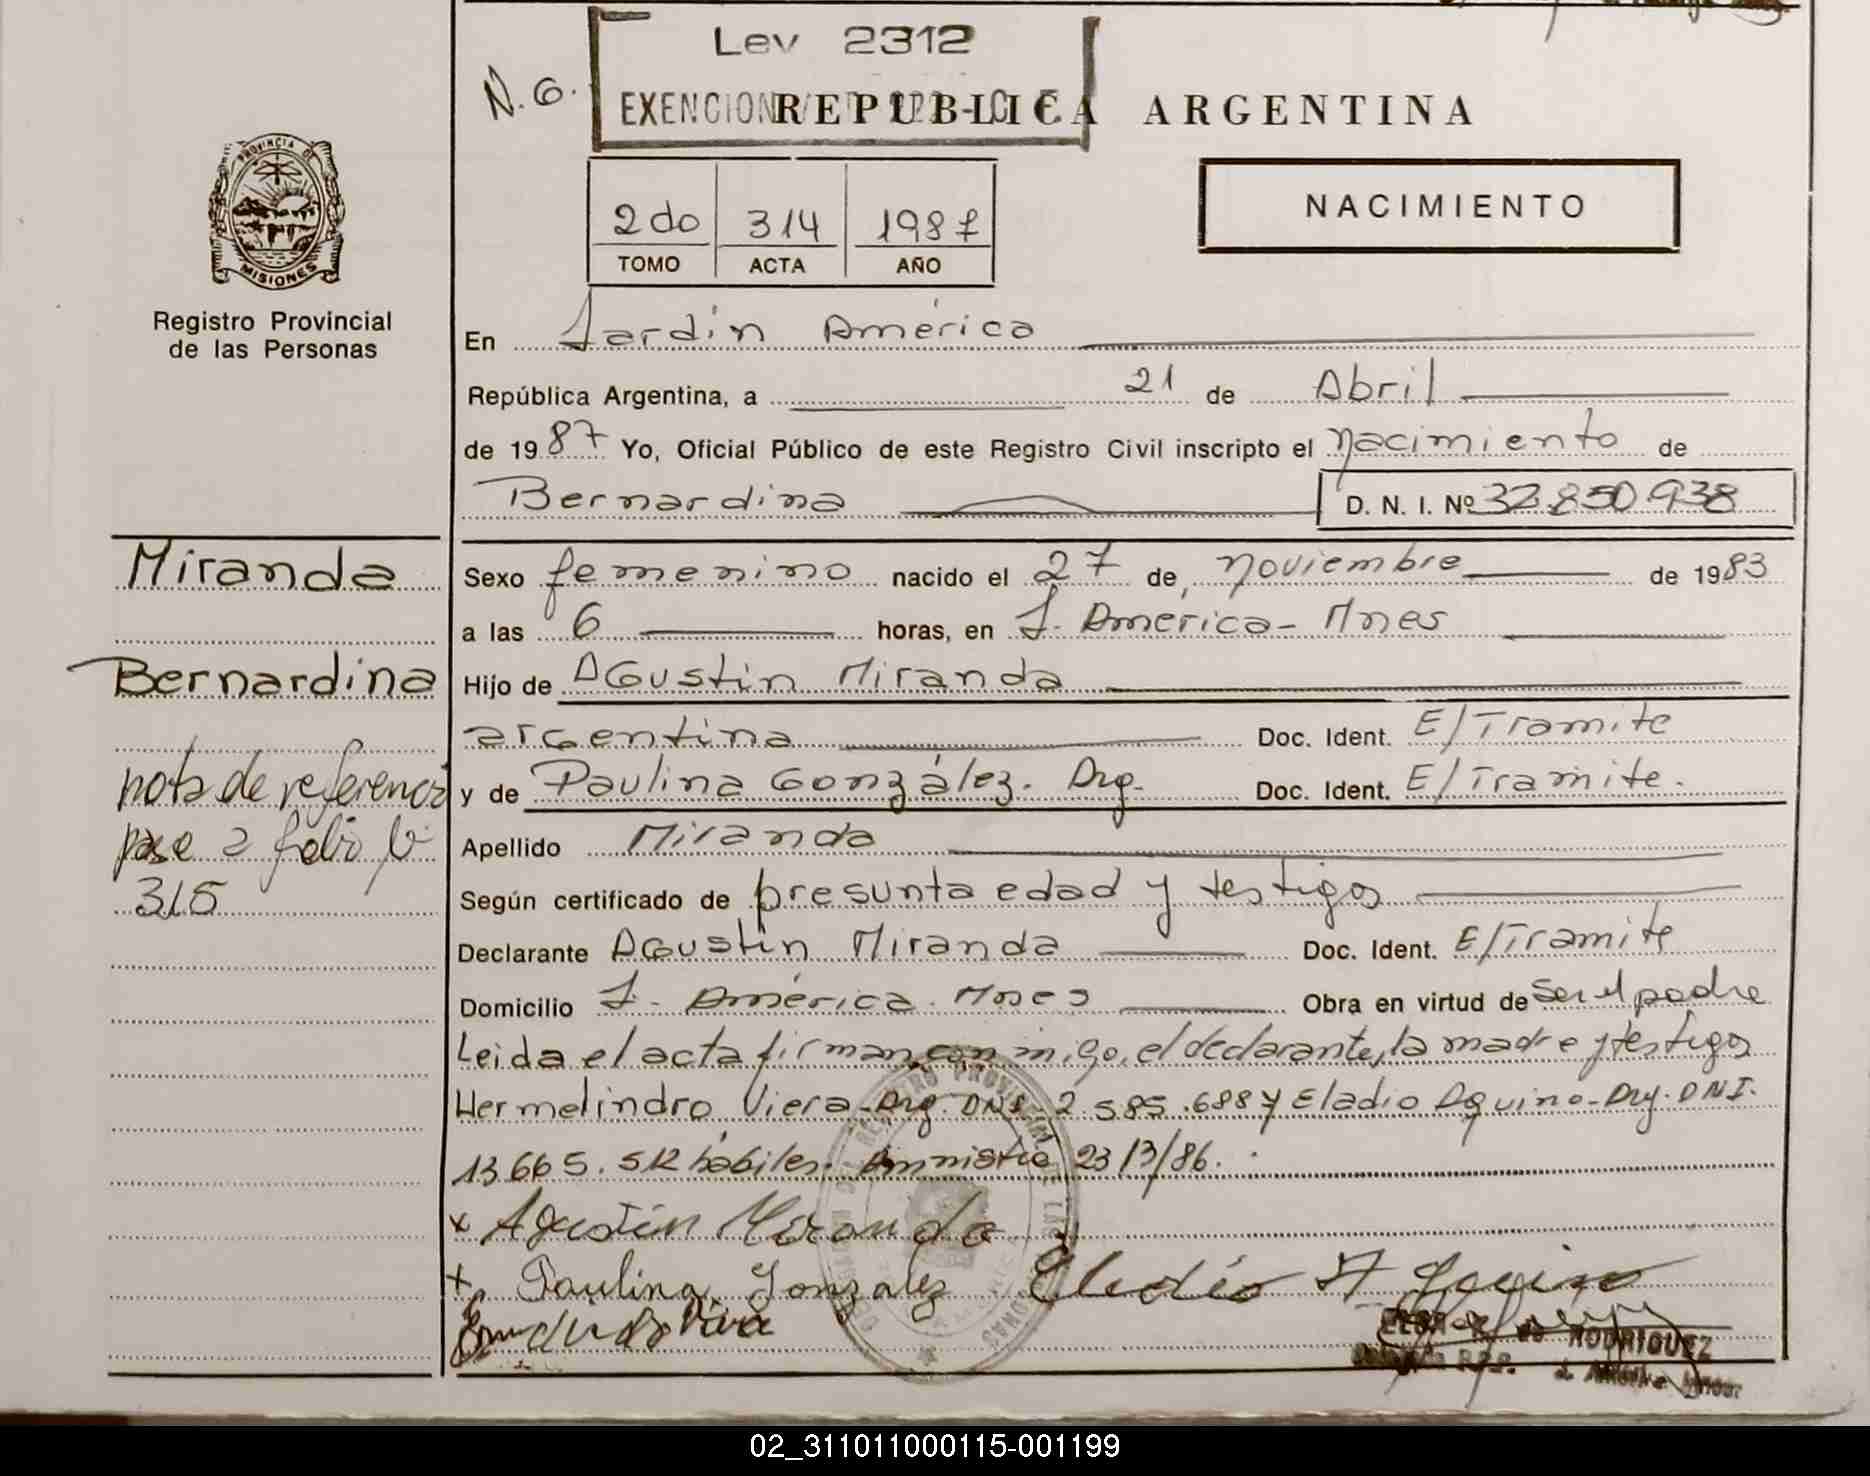 Ley 2312
N. G.
EXENCION
REPUBLICA ARGENTINA
PROVINCIA DE
MISIONES
Registro Provincial
de las Personas
2do 314 1987
TOMO ACTA AÑO
NACIMIENTO
En Jardín América
República Argentina, a 21 de Abril
de 1987 Yo, Oficial Público de este Registro Civil inscripto el nacimiento de
Bernardina D. N. I. Nº 32.850.938
Miranda
Bernardina
nota de referencia
pase a folio Nº
315
Sexo femenino nacido el 27 de noviembre de 1983
a las 6 horas, en J. América - Mnes
Hijo de Agustín Miranda
argentina Doc. Ident. E/Tramite
y de Paulina González. Arg. Doc. Ident. E/Tramite.
Apellido Miranda
Según certificado de presunta edad y testigos
Declarante Agustín Miranda Doc. Ident. E/Tramite
Domicilio J. América. Mnes Obra en virtud de ser el padre
Leida el acta firman conmigo, el declarante, la madre y testigos
Hermelindro Viera - Arg. DNI. 2.585.688 y Eladio Aquino - Arg. DNI.
13.665.512 hábiles. Amnistia 23/3/86.
x Agustin Miranda
+ Paulina Gonzalez Eladio Aquino
RODRIGUEZ
02_311011000115-001199